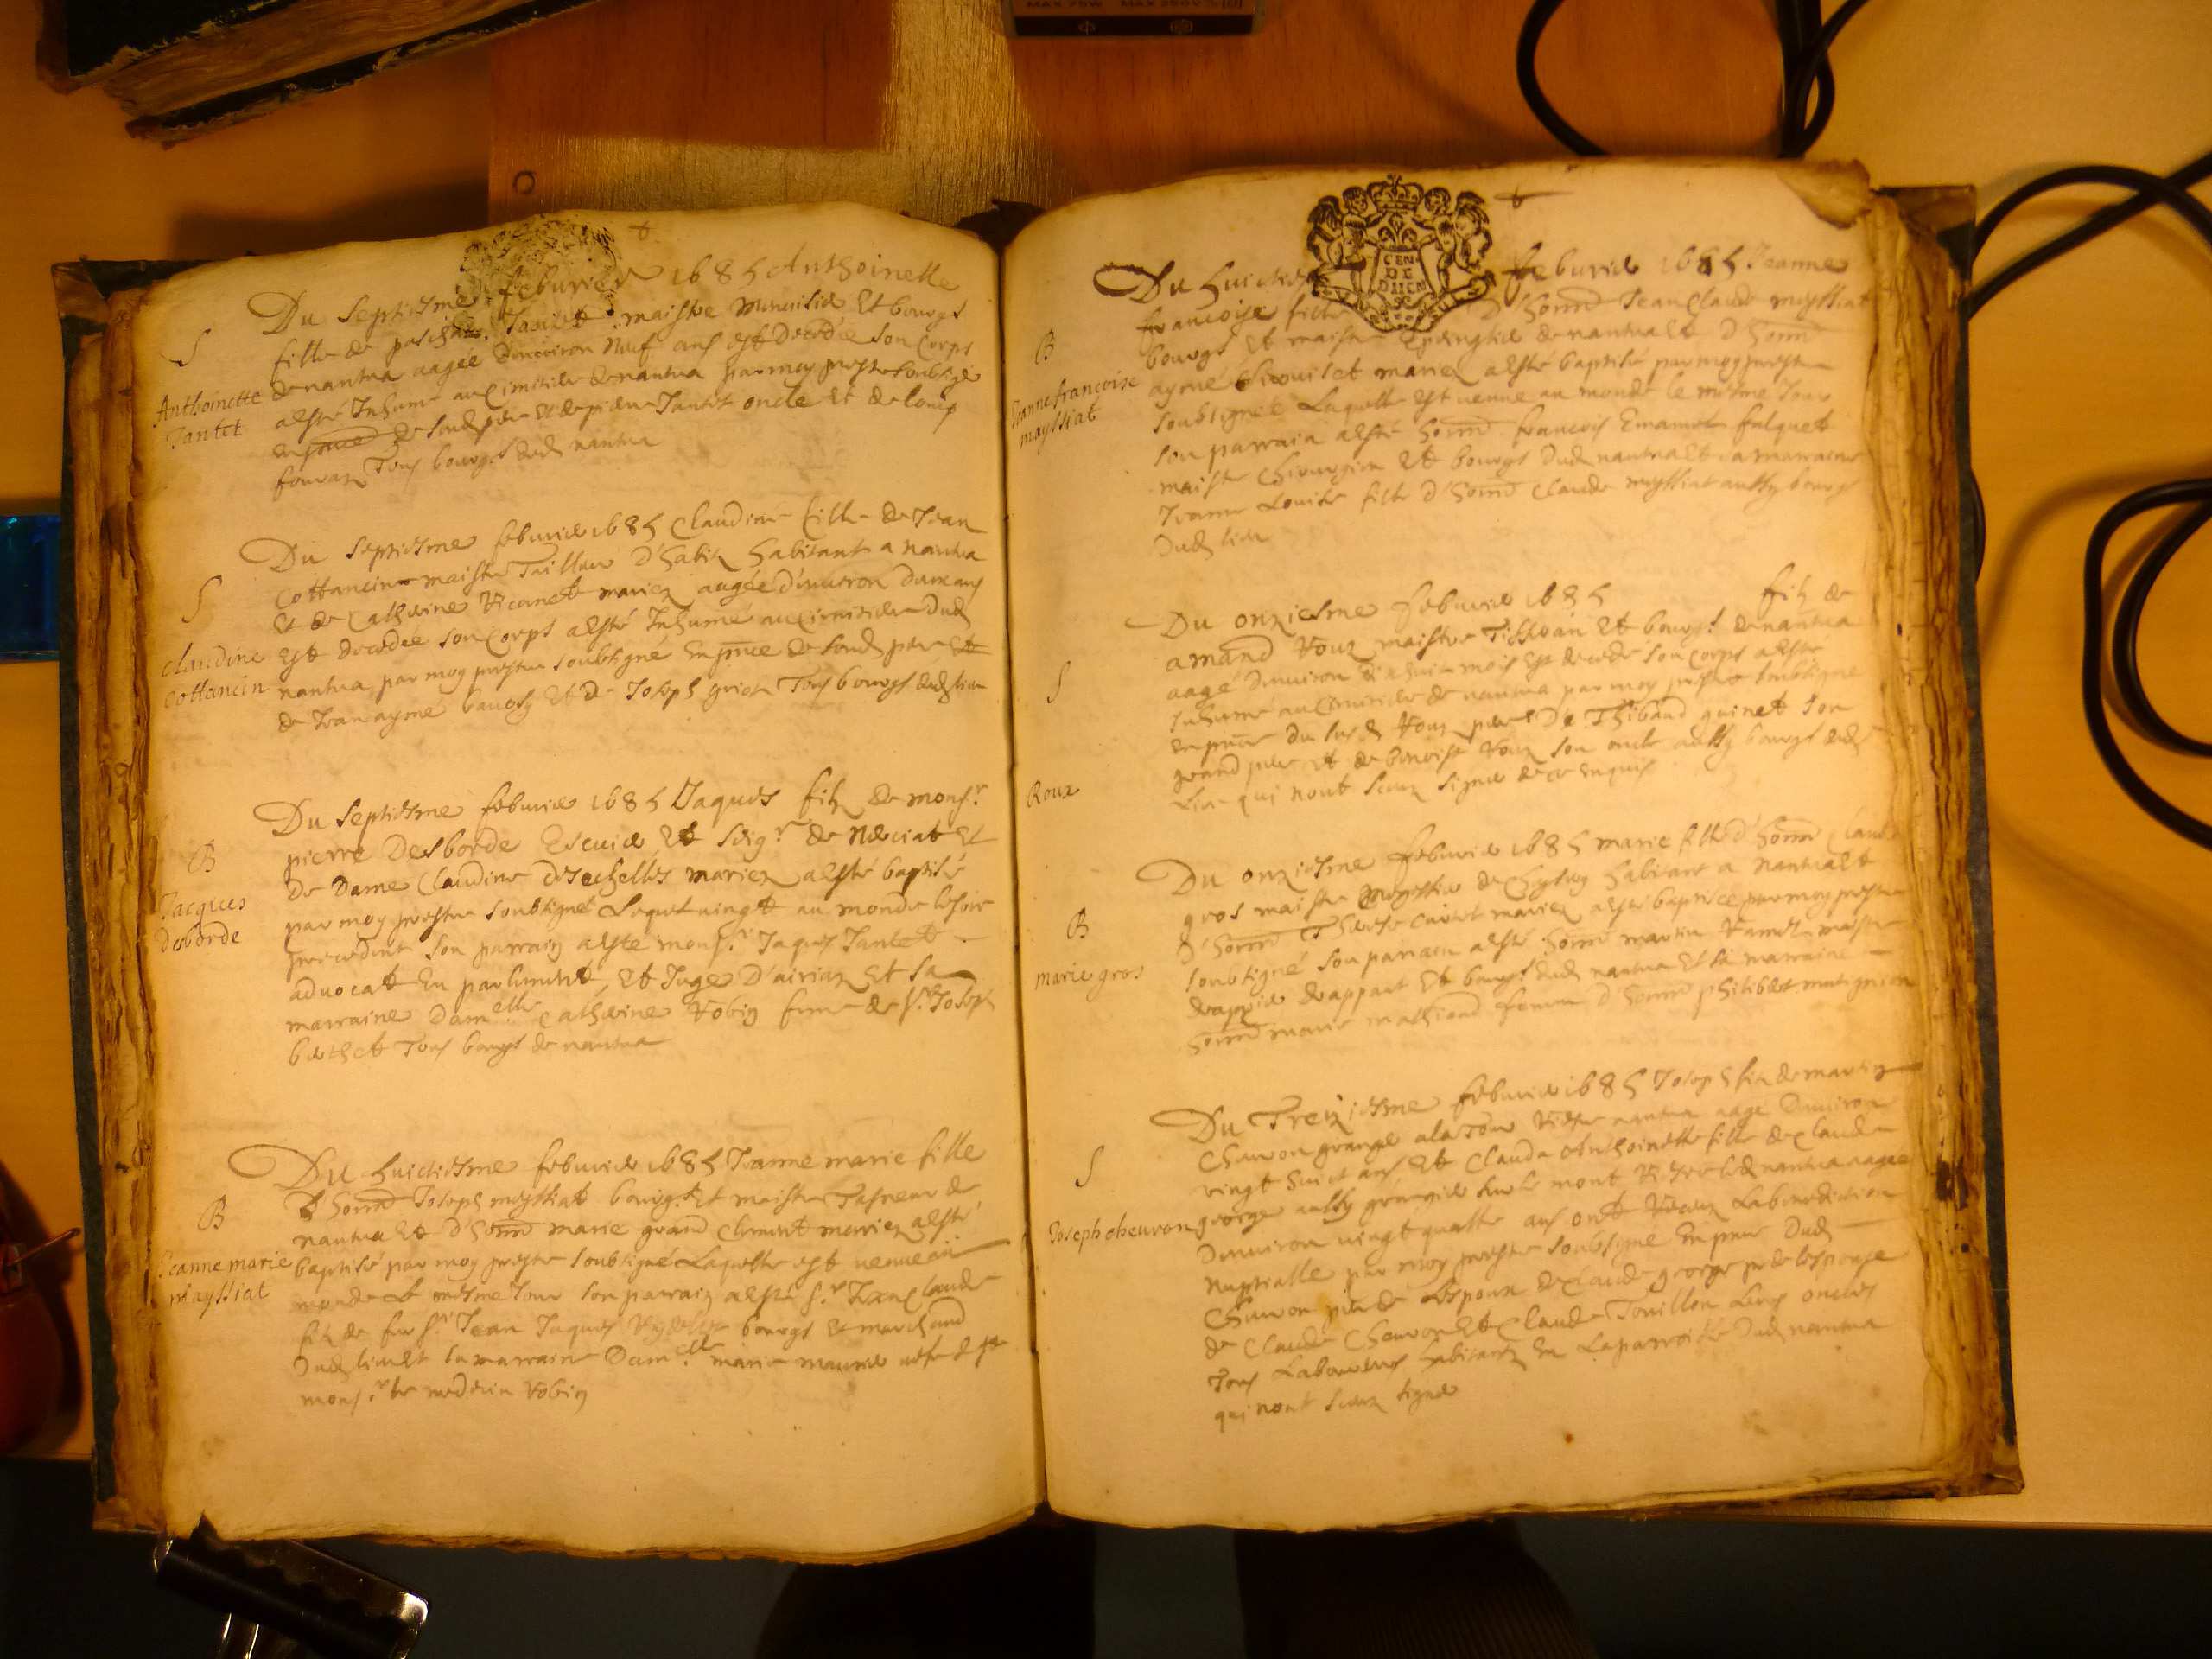 MAX 75W MAX 250V
Du Septiesme feburier 1685 Anthoinette
fille de Tantet maistre menuisier Et bourgs
de nantua aagee Denviron Neuf ans est Decedée Son Corps
aesté Inhumé au Cimitiere de nantua par moy prestre soubsigné
de Sond pere Et de pierre Tantet oncle Et de Loup
Tous bourgs dud nantua
S
Anthoinette
Tantet
Du Septiesme feburier 1685 Claudine fille de Jean
Cottancin maistre Tailleur D'habitz habitant a Nantua
Et de Catherine mariez aagée d'environ
Est Decedee son Corps aesté Inhumé au Cimitiere Dud
nantua par moy prestre soubsigné En pnce de Sond pere Et
de Jean aymé Et de Joseph Tous bourgs dud lieu
S
claudine
cottancin
Du Septiesme feburier 1685 Jaques filz de monsr
pierre Desborde Escuier Et Seigr de Et
De Dame Claudine mariez aesté baptisé
par moy prestre soubsigné Lequel vingt au monde le soir
precedent Son parrain aesté monsr Jaques Tantet
advocat En parlement, Et Juge D'airian Et Sa
marraine Damelle Catherine Robin feme de Sr Joseph
berthet Tous bourgs de nantua
B
Jacques
Deborde
Du huictiesme feburier 1685 Jeanne marie fille
D'honn Joseph meyssiat bourgs Et maistre de
nantua Et D'honn marie grand Clement mariez aesté
baptisé par moy prestre soubsigné Laquelle est venue au
monde Le mesme Jour son parrain aesté Sr Claude
filz de feu Sr Jean Jaques bourgs Et marchand
Dud lieu Et sa marraine Damelle marie
monsr le medecin Robin
B
Jeanne marie
mayssiat
CEN
DE
Du huictiesme feburier 1685 Jeanne
francoise fille D'honn Jean Claude meyssiat
bourgs Et maistre Epinglier de nantua Et D'honn
aymé mariez aesté baptisé par moy prestre
soubsigné Laquelle est venue au monde le mesme Jour
son parrain aesté honn francois Emanuel falquet
maistre Chirurgien Et bourgs Dud nantua Et sa marraine
Jeanne Louise fille D'honn Claude meyssiat aussy bourgs
Dud lieu
B
Jeanne francoise
mayssiat
Du onziesme feburier 1685 filz de
amand Roux maistre Tisseran Et bourgs de nantua
aagé Denviron mois Est decedé son Corps aesté
Inhumé au Cimitiere de nantua par moy prestre soubsigné
En pnce du susd Roux pere De Thibaud guinet son
grand pere Et de benoist Roux son oncle aussy bourgs dud
Lieu qui nont Sceuz signer de ce Enquis
S
Roux
Du onziesme feburier 1685 marie fille D'honn Claude
gros maistre de habitant a Nantua Et
D'honn mariez aesté baptisée par moy prestre
soubsigné son parrain aesté honn martin maistre
drappier drappant Et bourgs dud nantua Et sa marraine
honn marie femme D'honn philibert
B
marie gros
Du Treiziesme feburier 1685 Joseph filz de martin
Chevron granger a la Tour nantua aagé Denviron
vingt huict ans Et Clauda Anthoinette fille de Claude
george aussy granger sur le mont nantua aagee
Denviron vingt quattre ans ont Receuz La benediction
nuptialle par moy prestre soubsigné En pnce Dud
Chevron pere de Lespoux de Claude george pere de lespouse
de Claude Chevron Et Claude Touillon Leurs oncles
Tous Laboureurs habitantz En La parroisse Dud nantua
qui nont sceuz signer
S
Joseph cheuron